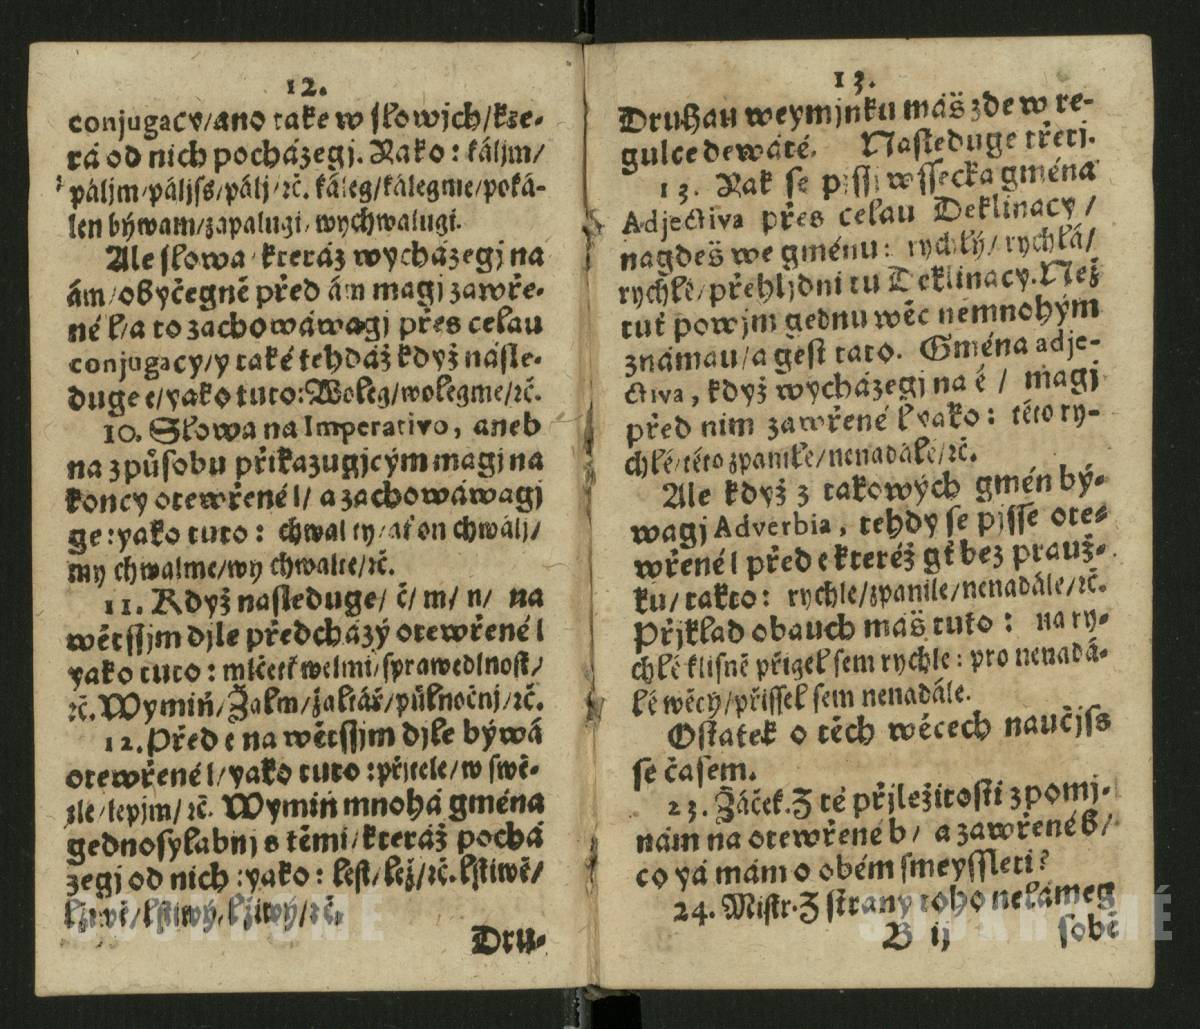 12.
conjugacy/ano take w slowjch/kte-
rá od nich pocházegj. Yako: káljm/
páljm/páljſs/pálj/ꝛč. káleg/kálegme/poká-
len býwam/zapalugi/wychwalugi.
Ale slowa kteráž wycházegj na
ám/obyčegně před ám magj zawře-
né ł/a to zachowáwagj přes celau
conjugacy/y také tehdáž když násle-
duge e/yako tuto: Woleg/wolegme/ꝛč.
10. Slowa na Imperativo, aneb
na způsobu přikazugjcým magj na
koncy otewřené l/ a zachowáwagj
ge: yako tuto: chwal ty/ať on chwálj/
my chwalme/wy chwalte/ꝛč.
11. Když nasleduge/ č/ m/ n/ na
wětſſjm djle předcházý otewřené l
yako tuto: mlčeti welmi/sprawedlnost/
ꝛč. Wymiň/ Žalm/žaltář/půlnočnj/ꝛč.
12. Před e na wětſſjm djle býwá
otewřené l/yako tuto: přjtele/w swě-
tle/lepjm/ꝛč. Wymiň mnohá gména
gednosylabnj s těmi/kteráž pochá
zegj od nich: yako: lest/lež/ꝛč. lstiwě/
lžiwě/lstiwý/lžiwý/ꝛč.
Dru-
13.
Druhau weymjnku máš zde w re-
gulce dewáté. Nasleduge třetj.
13. Yak se pjſſj wſſecka gména
Adjectiva přes celau Deklinacy/
nagdeš we gménu: rychlý/rychlá/
rychlé/přehljdni tu Deklinacy. Než
tuť powjm gednu wěc nemnohým
známau/a gest tato. Gména adje-
ctiva, když wycházegj na é / magj
před nim zawřené ł yako: této ry-
chlé/této zpanilé/nenadálé/ꝛč.
Ale když z takowých gmén bý-
wagj Adverbia, tehdy se pjſſe ote-
wřené l před e kteréž gť bez prauž-
ku/ takto: rychle/zpanile/nenadále/ꝛč.
Přjklad obauch máš tuto: na ry-
chlé klisně přigel sem rychle: pro nenadá-
lé wěcy/přiſſel sem nenadále.
Ostatek o těch wěcech naučjſs
se časem.
23. Žáček. Z té přjležitosti zpomj-
nám na otewřené b/ a zawřené b/
co yá mám o obém smeyſſleti?
24. Mistr. Z strany toho nelámeg
B ij sobě